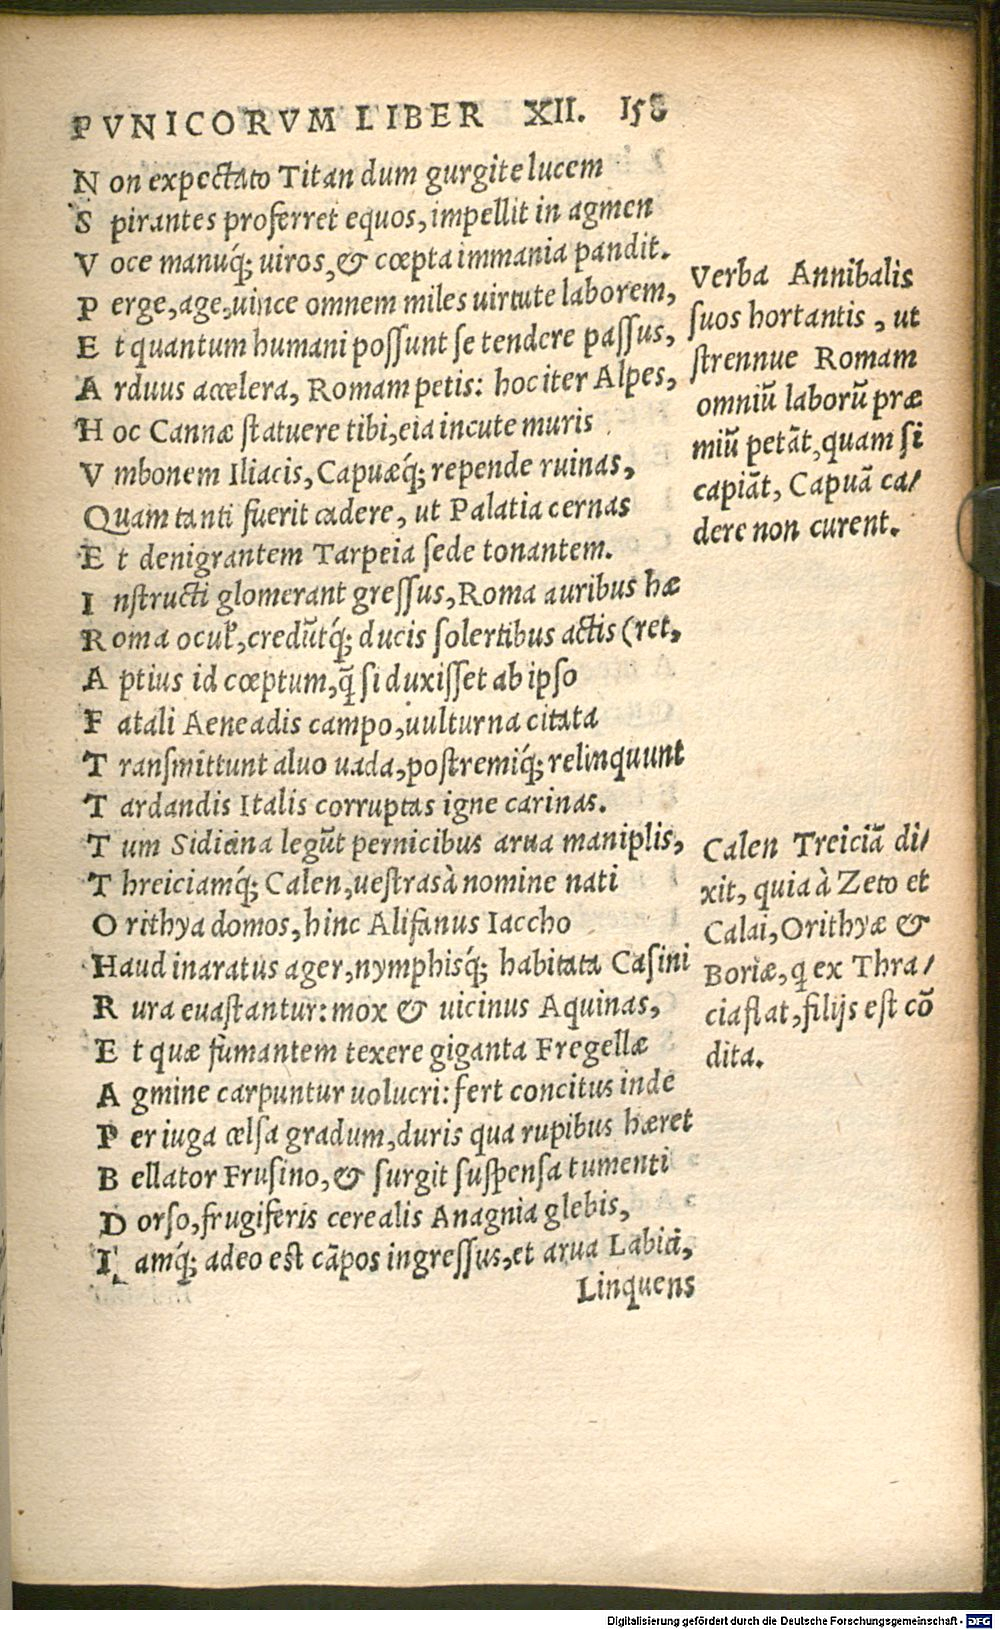 PVNICORVM LIBER XII. 158
Non expectato Titan dum gurgite lucem
Spirantes proferret equos, impellit in agmen
Voce manuq́; uiros, & cœpta immania pandit.
Perge, age, uince omnem miles uirtute laborem,
Et quantum humani possunt se tendere passus,
Arduus accelera, Romam petis: hoc iter Alpes,
Hoc Cannæ statuere tibi, eia incute muris
Vmbonem Iliacis, Capuæq́; repende ruinas,
Quam tanti fuerit cadere, ut Palatia cernas
Et denigrantem Tarpeia sede tonantem.
Instructi glomerant gressus, Roma auribus hæ
Roma oculꝭ, credũtq́; ducis solertibus actis (ret,
Aptius id cœptum, q̃ si duxisset ab ipso
Fatali Aeneadis campo, uulturna citata
Transmittunt aluo uada, postremiq́; relinquunt
Tardandis Italis corruptas igne carinas.
Tum Sidicina legũt pernicibus arua maniplis,
Threiciamq́; Calen, uestras à nomine nati
Orithya domos, hinc Alifanus Iaccho
Haud inaratus ager, nymphisq́; habitata Casini
Rura euastantur: mox & uicinus Aquinas,
Et quæ fumantem texere giganta Fregellæ
Agmine carpuntur uolucri: fert concitus inde
Per iuga celsa gradum, duris qua rupibus hæret
Bellator Frusino, & surgit suspensa tumenti
Dorso, frugiferis cerealis Anagnia glebis,
Iamq́; adeo est cãpos ingressus, et arua Labici,
Linquens
Verba Annibalis
suos hortantis, ut
strennue Romam
omniũ laborũ præ
miũ petãt, quam si
capiãt, Capuã ca/
dere non curent.
Calen Treiciã di/
xit, quia à Zeto et
Calai, Orithyæ &
Boriæ, q ex Thra/
cia flat, filijs est cõ
dita.
Digitalisierung gefördert durch die Deutsche Forschungsgemeinschaft - DFG